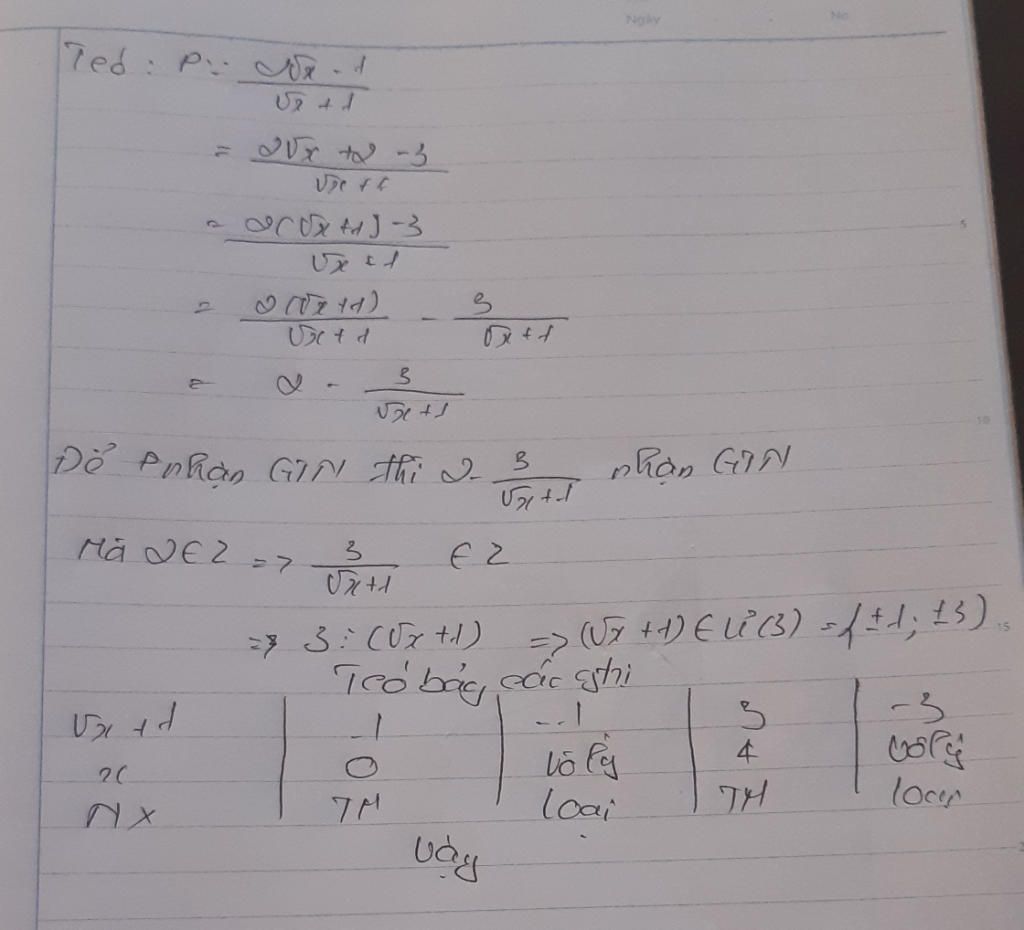 Ngày No
Ted : P = (2√x - 1)/(√x + 1)
= (2√x + 2 - 3)/(√x + 1)
= (2(√x + 1) - 3)/(√x + 1)
= 2(√x + 1)/(√x + 1) - 3/(√x + 1)
= 2 - 3/(√x + 1)
Để P nhận GTN thì 2 - 3/(√x + 1) nhận GTN
Mà 2 ∈ Z => 3/(√x + 1) ∈ Z
=> 3 ⋮ (√x + 1) => (√x + 1) ∈ Ư(3) = {±1; ±3}
Tcó bảng các ghi
√x + 1 | 1 | -1 | 3 | -3
x | 0 | vô lý | 4 | vô lý
NX | TM | loại | TM | loại
Vậy